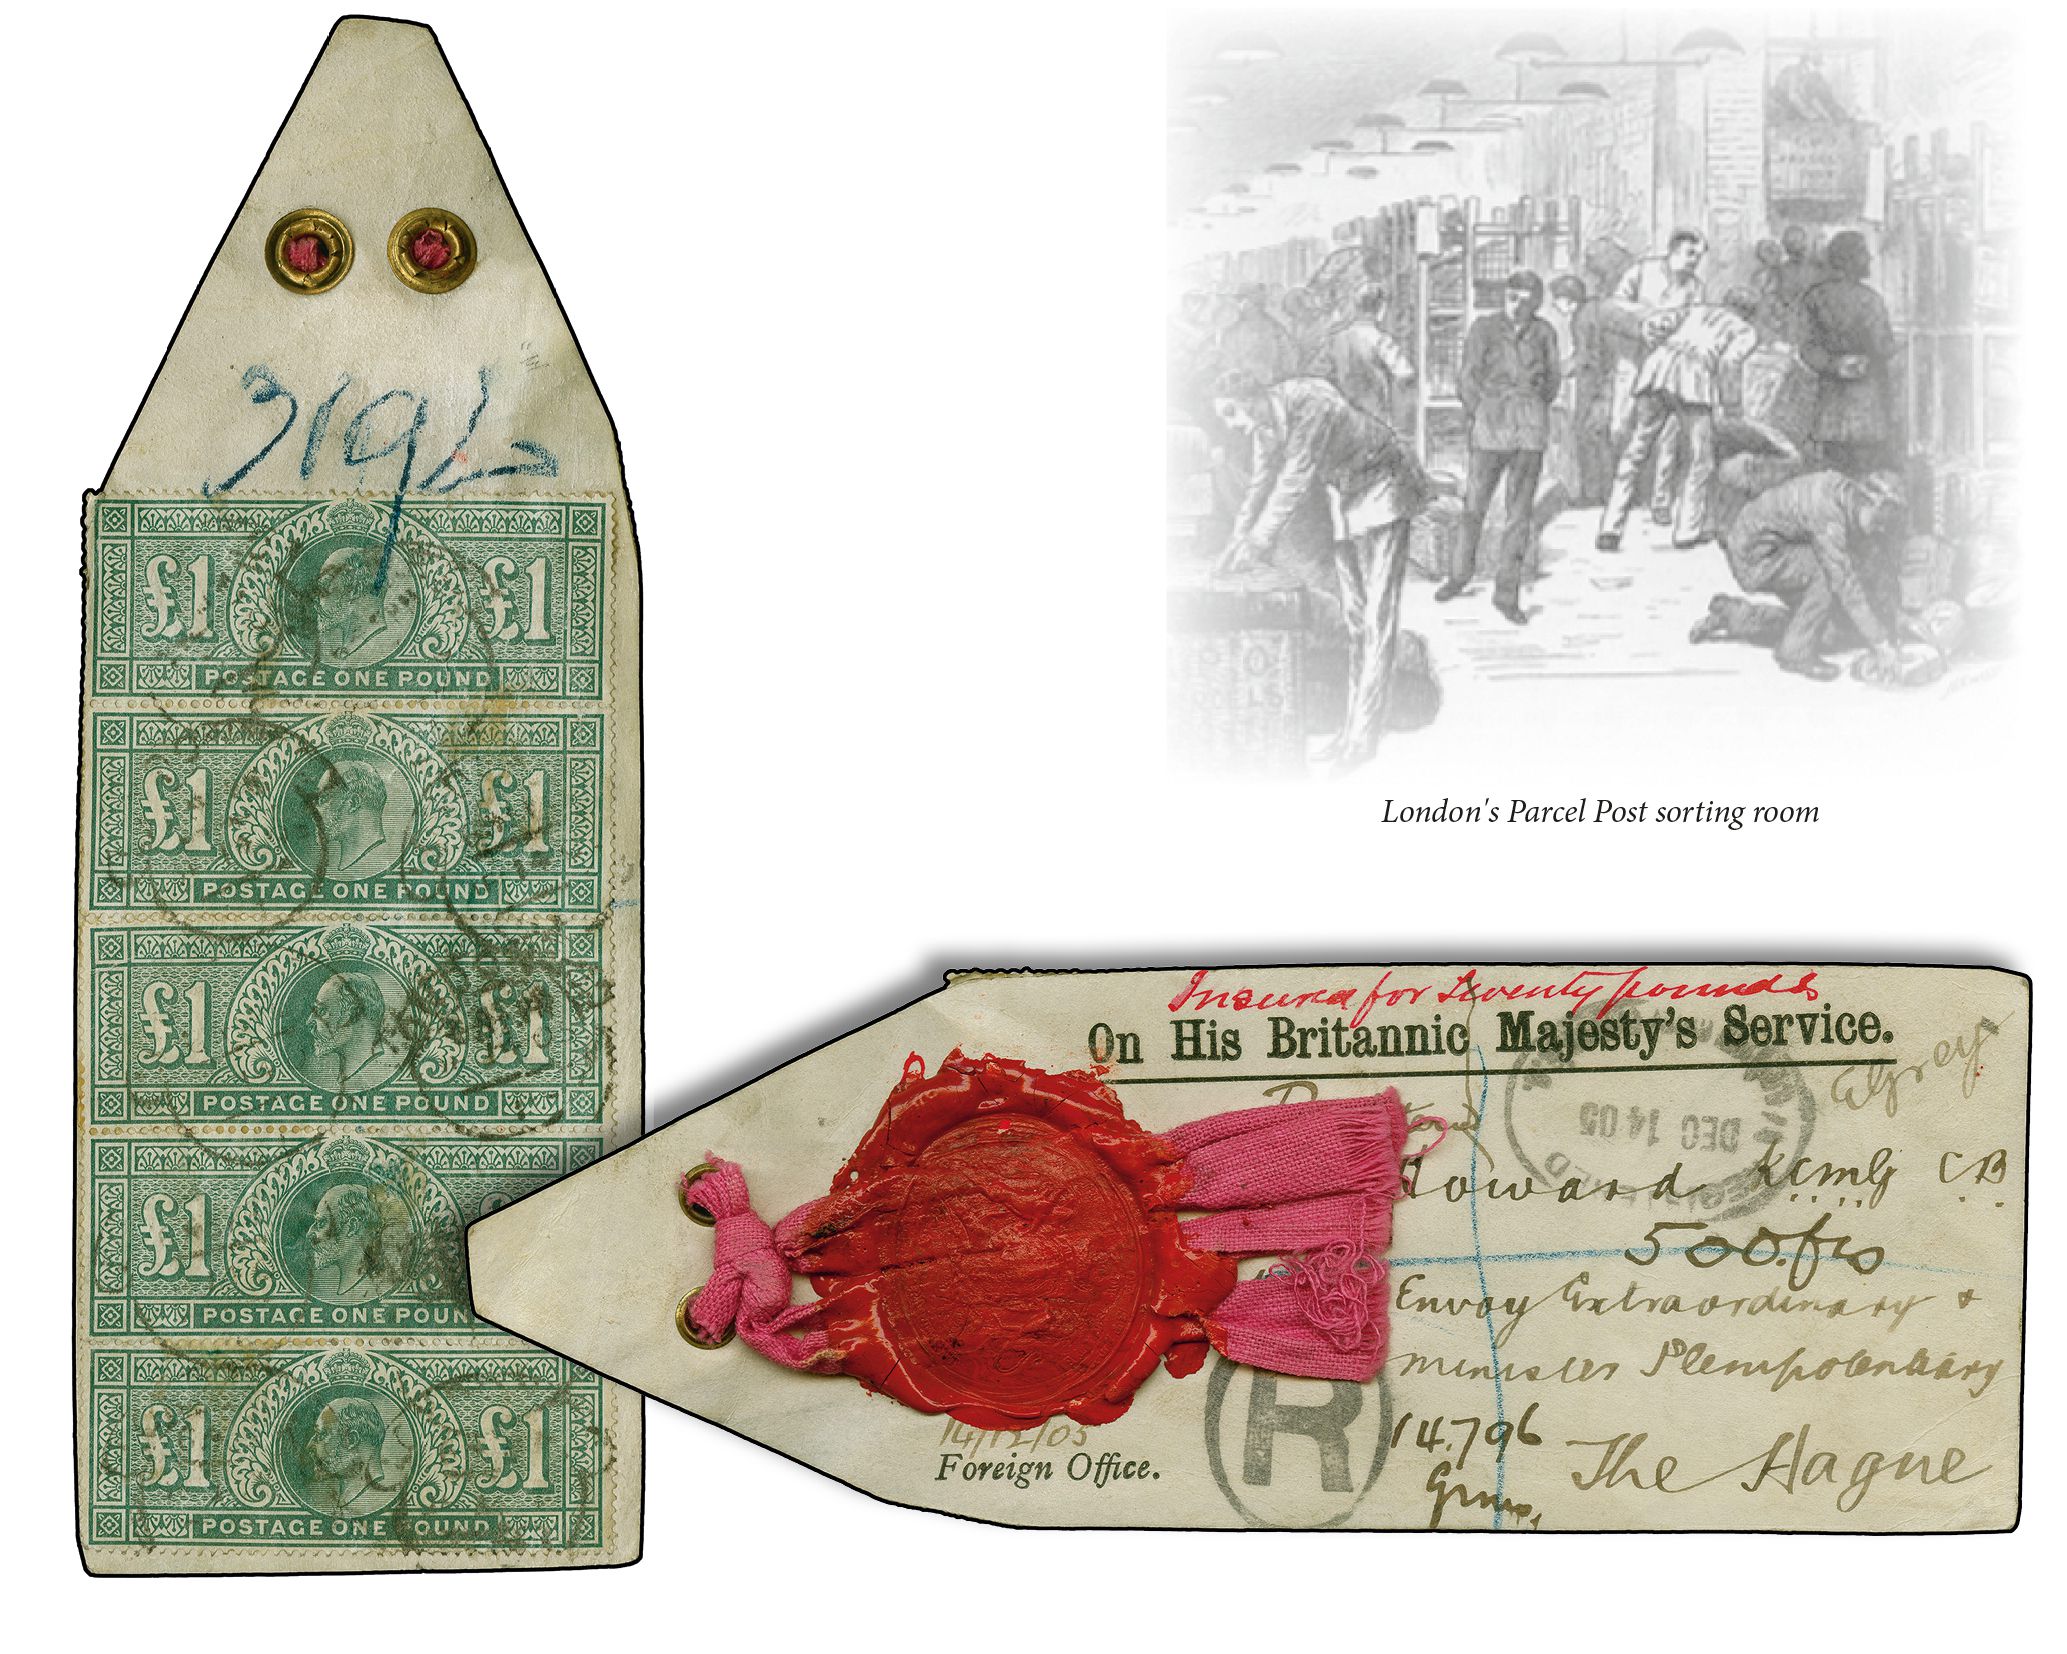 3192
£1 £1
POSTAGE ONE POUND
£1 £1
POSTAGE ONE POUND
£1 £1
POSTAGE ONE POUND
£1
POSTAGE ONE POUND
£1 £1
POSTAGE ONE POUND
London's Parcel Post sorting room
Insured for Seventy pounds
On His Britannic Majesty's Service.
EGrey
DEC 14 05
Howard KCMG CB
500.frs
Envoy Extraordinary &
Minister Plenipotentiary
14/12/05
Foreign Office.
R
14.796
Grms,
The Hague